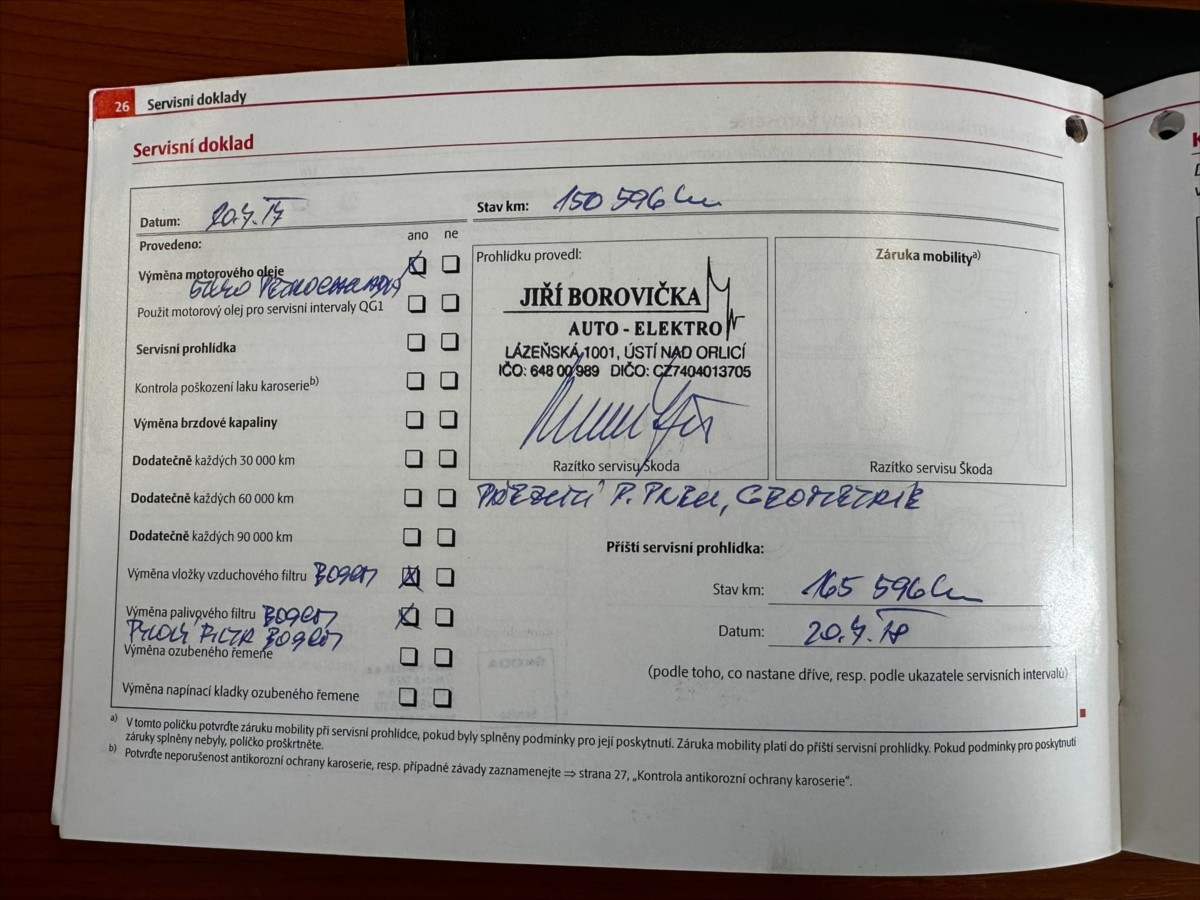 26 Servisní doklady
Servisní doklad
Datum: 20.4.17
Stav km: 150 596 km
Provedeno:
ano ne
Výměna motorového oleje
EURO
Použit motorový olej pro servisní intervaly QG1
Servisní prohlídka
Kontrola poškození laku karoserie b)
Výměna brzdové kapaliny
Dodatečně každých 30 000 km
Dodatečně každých 60 000 km
Dodatečně každých 90 000 km
Výměna vložky vzduchového filtru BOSCH
Výměna palivového filtru BOSCH
PYLOVÝ FILTR BOSCH
Výměna ozubeného řemene
Výměna napínací kladky ozubeného řemene
Prohlídku provedl:
JIŘÍ BOROVIČKA
AUTO - ELEKTRO
LÁZEŇSKÁ 1001, ÚSTÍ NAD ORLICÍ
IČO: 648 00 989 DIČO: CZ7404013705
Razítko servisu Škoda
Záruka mobility a)
Razítko servisu Škoda
P. PNEU, GEOMETRIE
Příští servisní prohlídka:
Stav km: 165 596 km
Datum: 20.4.18
(podle toho, co nastane dříve, resp. podle ukazatele servisních intervalů)
a) V tomto políčku potvrďte záruku mobility při servisní prohlídce, pokud byly splněny podmínky pro její poskytnutí. Záruka mobility platí do příští servisní prohlídky. Pokud podmínky pro poskytnutí
záruky splněny nebyly, políčko proškrtněte.
b) Potvrďte neporušenost antikorozní ochrany karoserie, resp. případné závady zaznamenejte ⇒ strana 27, „Kontrola antikorozní ochrany karoserie“.